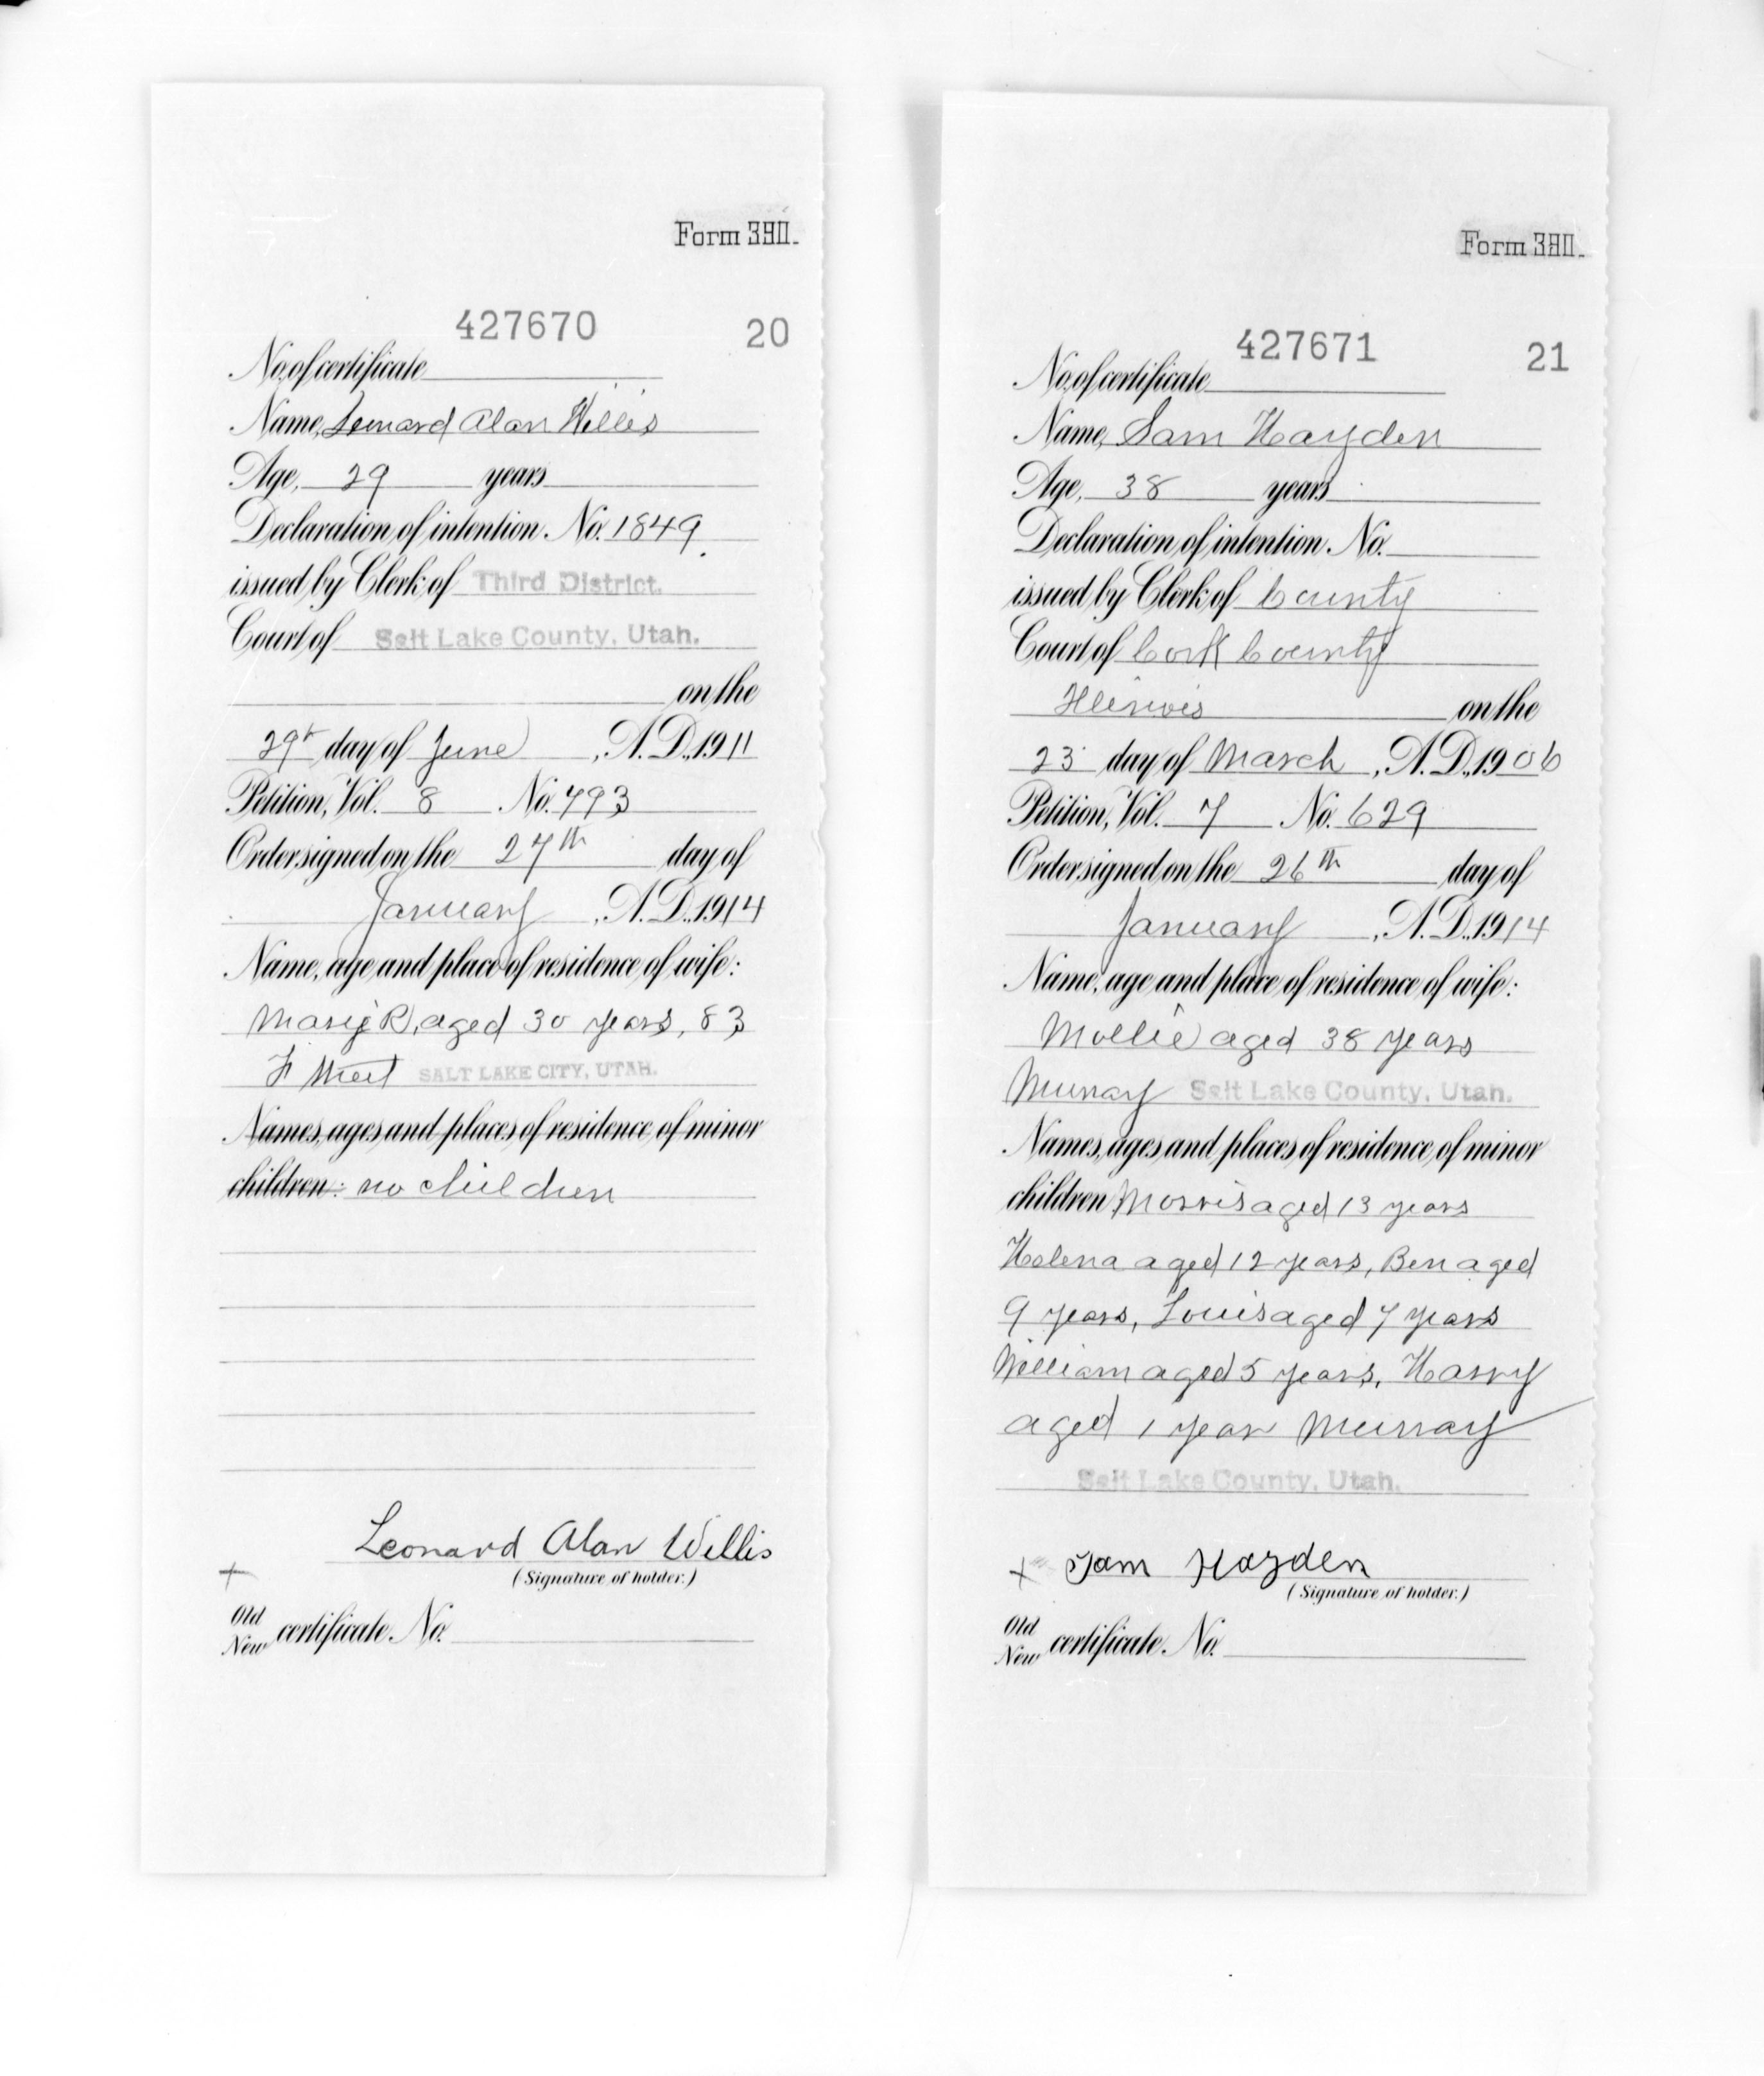 Form 380.
427670 20
No. of certificate
Name, Leonard Alan Willis
Age, 29 years
Declaration of intention. No. 1849
issued by Clerk of Third District.
Court of Salt Lake County, Utah.
on the
29th day of June, A.D. 1911
Petition, Vol. 8 No. 793
Order signed on the 27th day of
January, A.D. 1914
Name, age and place of residence of wife:
Marie R, aged 30 years, 83
F Street SALT LAKE CITY, UTAH.
Names, ages and places of residence of minor
children: no children
Leonard Alan Willis
(Signature of holder.)
Old
New certificate No.
Form 380.
427671 21
No. of certificate
Name, Sam Hayden
Age, 38 years
Declaration of intention. No.
issued by Clerk of County
Court of Cook County
Illinois on the
23 day of March, A.D. 1906
Petition, Vol. 7 No. 629
Order signed on the 26th day of
January, A.D. 1914
Name, age and place of residence of wife:
Mollie aged 38 years
Murray Salt Lake County, Utah.
Names, ages and places of residence of minor
children Morris aged 13 years
Helena aged 12 years, Ben aged
9 years, Louis aged 7 years
William aged 5 years, Harry
aged 1 year Murray
Salt Lake County, Utah.
x Sam Hayden
(Signature of holder.)
Old
New certificate No.